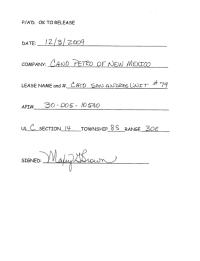 P/A'D. OK TO RELEASE
DATE: 12/3/2009
COMPANY: CANO PETRO OF NEW MEXICO
LEASE NAME and #. CATO SAN ANDRES UNIT #79
API# 30-005-10540
UL C SECTION 14 TOWNSHIP 8S RANGE 30E
SIGNED: Mary G Brown